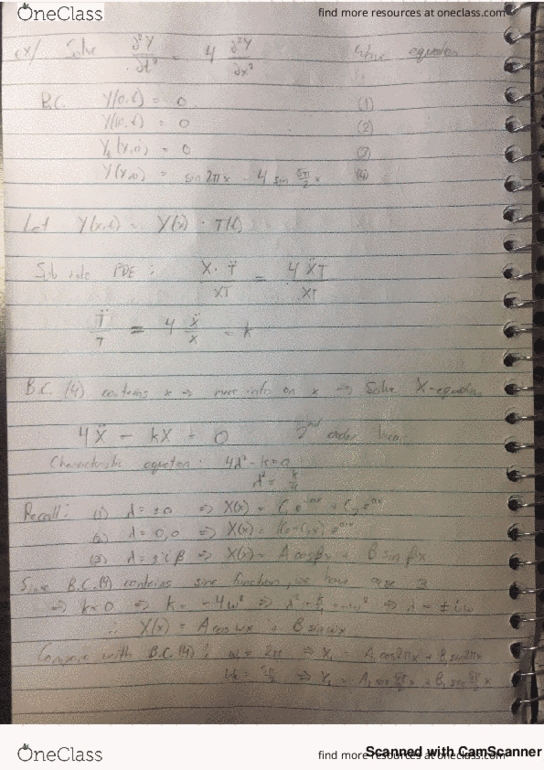 OneClass
find more resources at oneclass.com
ex/ Solve ∂²Y/∂t² = 4 ∂²Y/∂x² Wave equation
B.C. Y(0,t) = 0 (1)
= 0 (2)
Yₜ(x,0) = 0 (3)
Y(x,0) = sin 2πx - 4 sin 5π/2 x (4)
Let Y(x,t) = X(x) · T(t)
Sub into PDE : X · T̈ / XT = 4 ẌT / XT
T̈/T = 4 Ẍ/X = k
B.C. (4) contains x => more info on x => Solve X-equation
4Ẍ - kX = 0 2nd order linear
Characteristic equation : 4λ² - k = 0
λ² = k/4
Recall: (1) => X(x) =
(2) => X(x) =
(3) λ = ± i β => X(x) = A cos βx + B sin βx
Since B.C.(4) contains sine function, we have case 3
=> k < 0 => k = -4ω² => λ² = k/4 = -ω² => λ = ± iω
∴ X(x) = A cos ωx + B sin ωx
Compare with B.C.(4) : ω₁ = 2π => X₁ = A₁ cos 2πx + B₁ sin 2πx
ω₂ = 5π/2 => X₂ = A₂ cos 5π/2 x + B₂ sin 5π/2 x
OneClass
find more resources at oneclass.com
Scanned with CamScanner